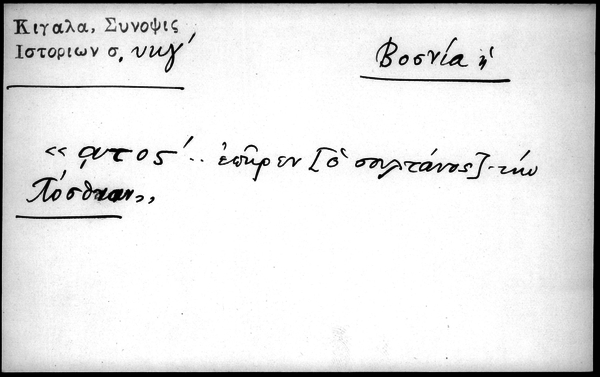 Κιγαλα, Συνοψις
Ιστοριων σ. υκγʹ
Βοσνία ἡ
«͵αυοςʹ.. ἐπῆρεν [ὁ σουλτάνος] τὴν
Πόσθναν»,